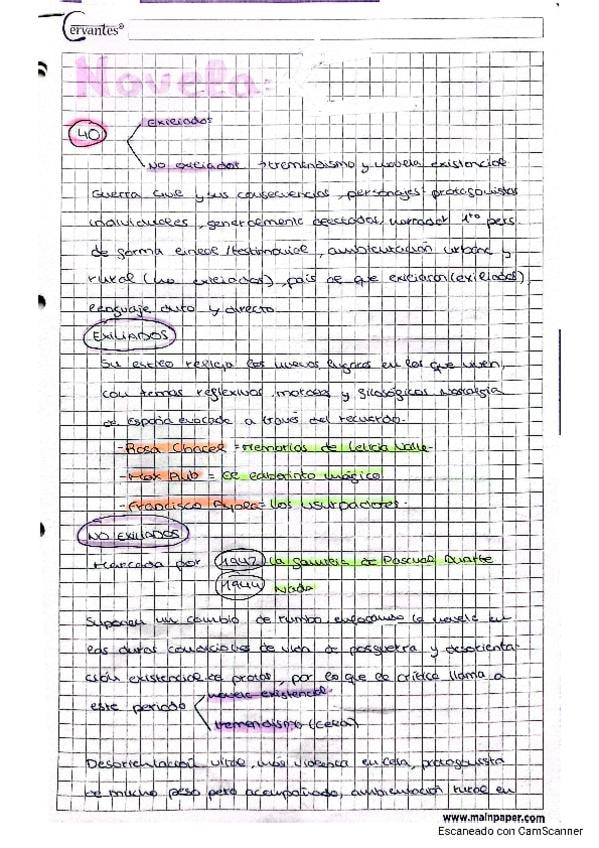 Cervantes®
Novela:
40
exiliados
no exiliados → tremendismo y novela existencial
Guerra civil y sus consecuencias, personajes: protagonistas
individuales, generalmente desorientados, narrador 1ª pers.
de forma lineal/testimonial, ambientación urbana y
rural (no exiliados), país al que exiliaron (exiliados)
lenguaje duro y directo.
EXILIADOS
Su estilo refleja los nuevos lugares en los que viven,
con temas reflexivos, morales y filosóficos. Nostalgia
de España evocada a través del recuerdo.
-Rosa Chacel = Memorias de Leticia Valle.
-Max Aub = El laberinto mágico
-Francisco Ayala = Los usurpadores.
NO EXILIADOS
Marcada por 1942 La familia de Pascual Duarte
1944 Nada
Suponen un cambio de rumbo enfocando la novela en
las duras condiciones de vida de posguerra y desorienta-
ción existencial de protas, por lo que la crítica llama a
este periodo
novela existencial
tremendismo (Cela)
Desorientación vital, más violencia en Cela, protagonista
de mucho peso pero acompañado, ambientación rural en
www.mainpaper.com
Escaneado con CamScanner